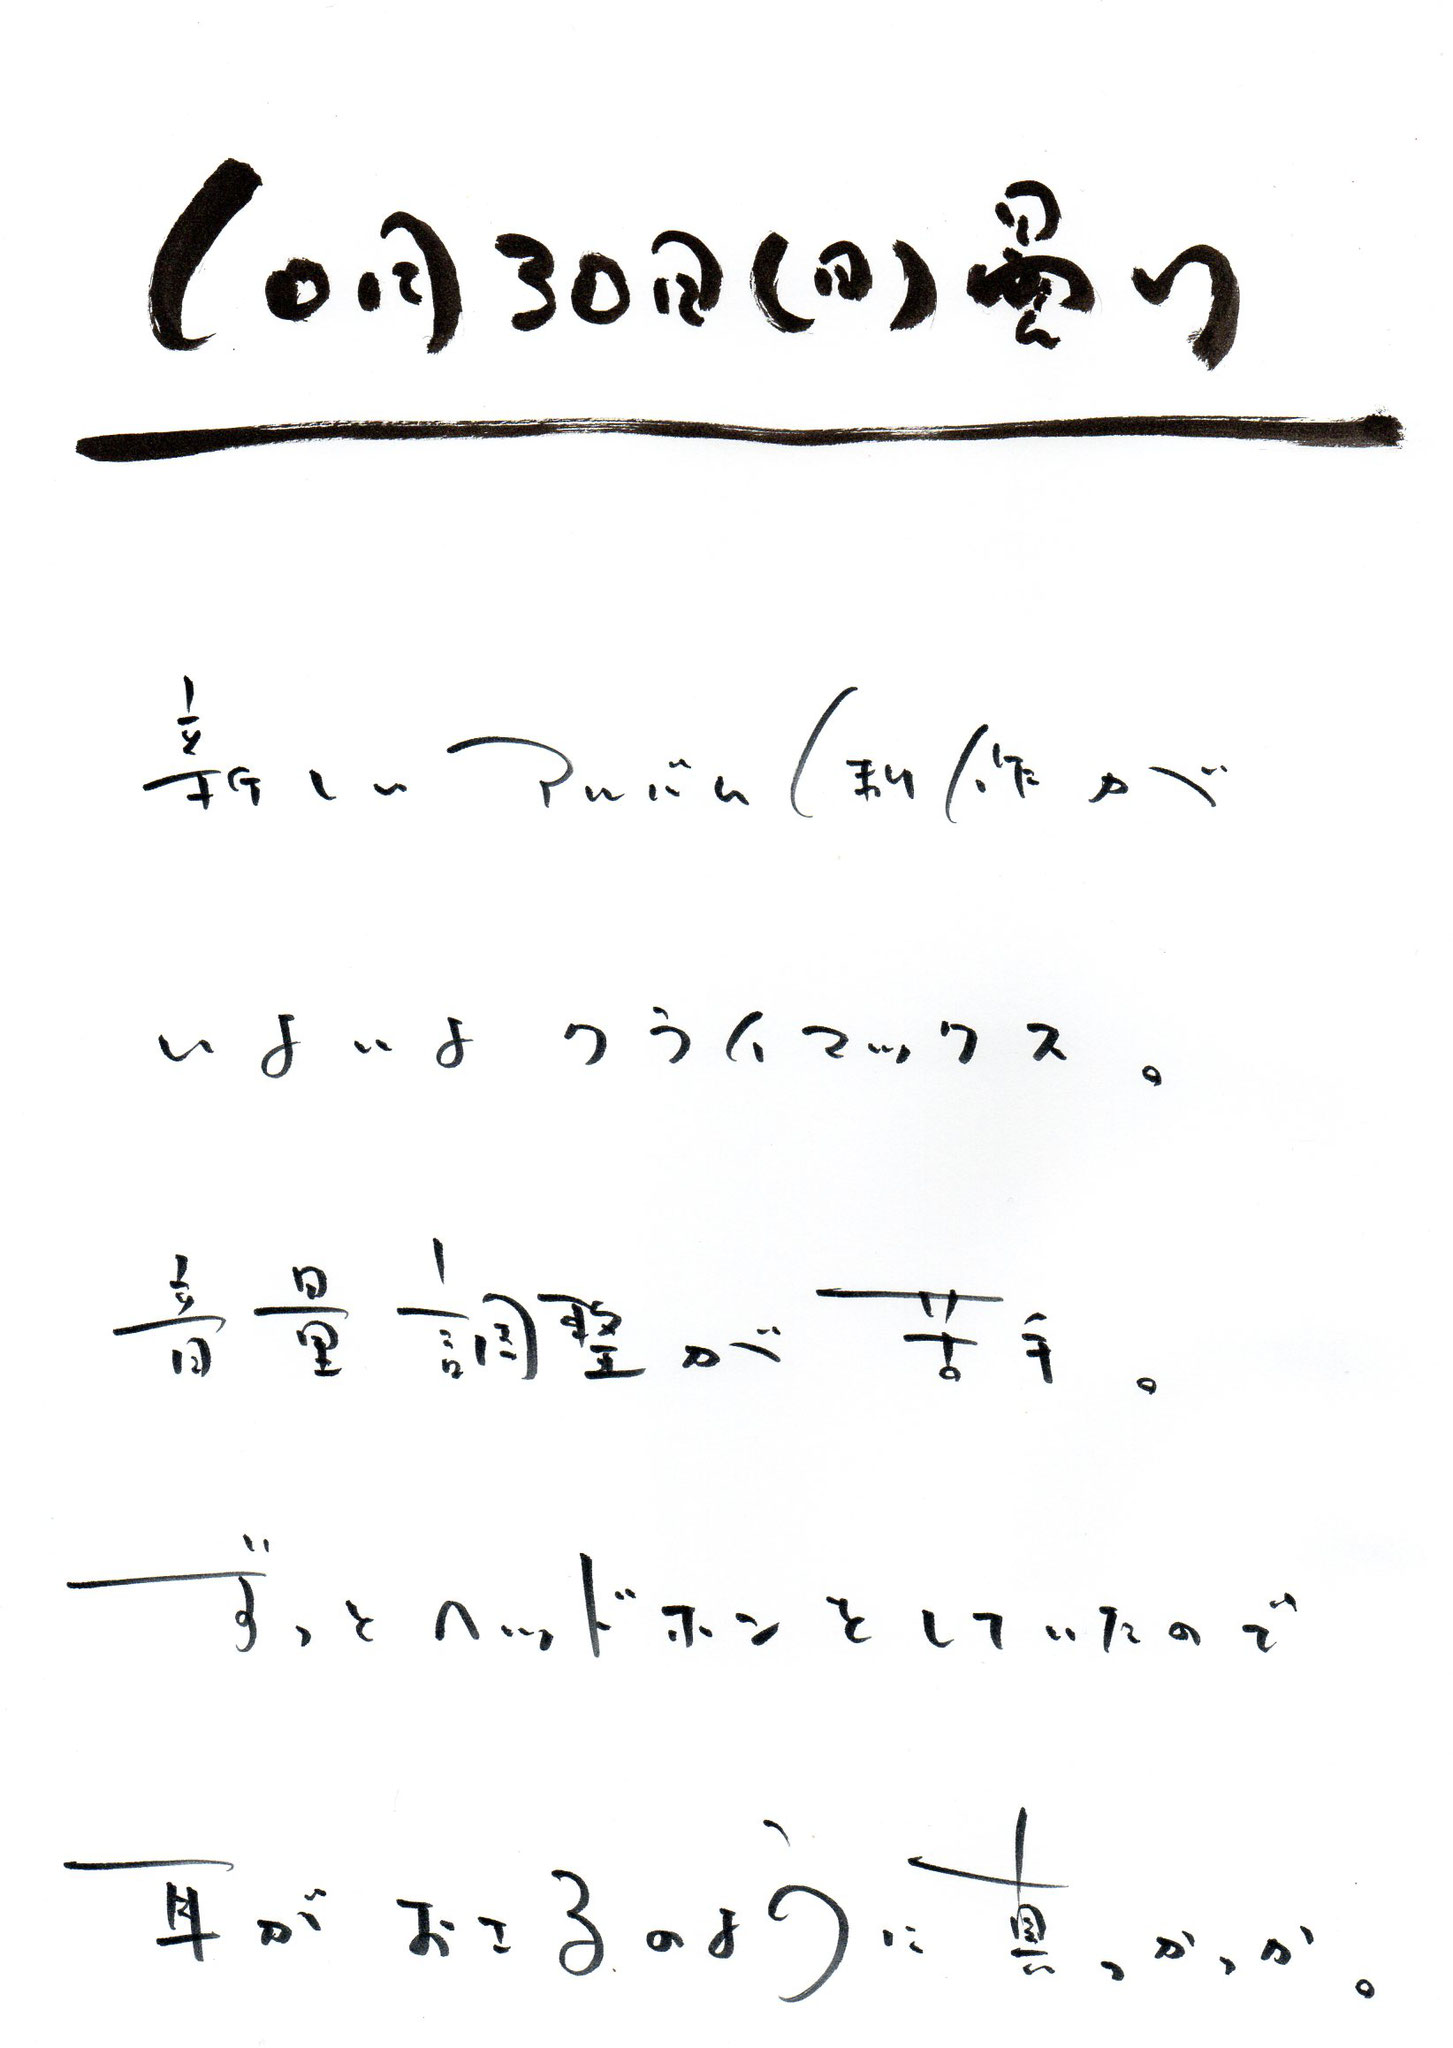 10月30日(日)曇り
新しいアルバム制作が
いよいよクライマックス。
音量調整が苦手。
ずっとヘッドホンをしていたので
耳がおさるのように真っかっか。